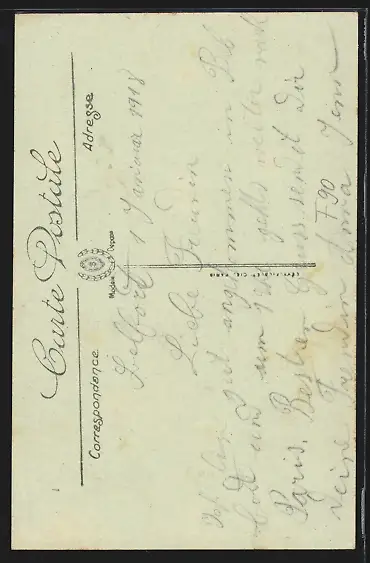 Carte Postale
Correspondence
Adresse
Modèle Déposé
LÉVY FILS ET CIE, PARIS
Belfort 1 Januar 1918
Liebe Freundin
Ich bin gut angekommen in Bel
fort und am gehts weiter nach
Paris. Besten Gruss sendet Dir
deine Freundin Anna
F90